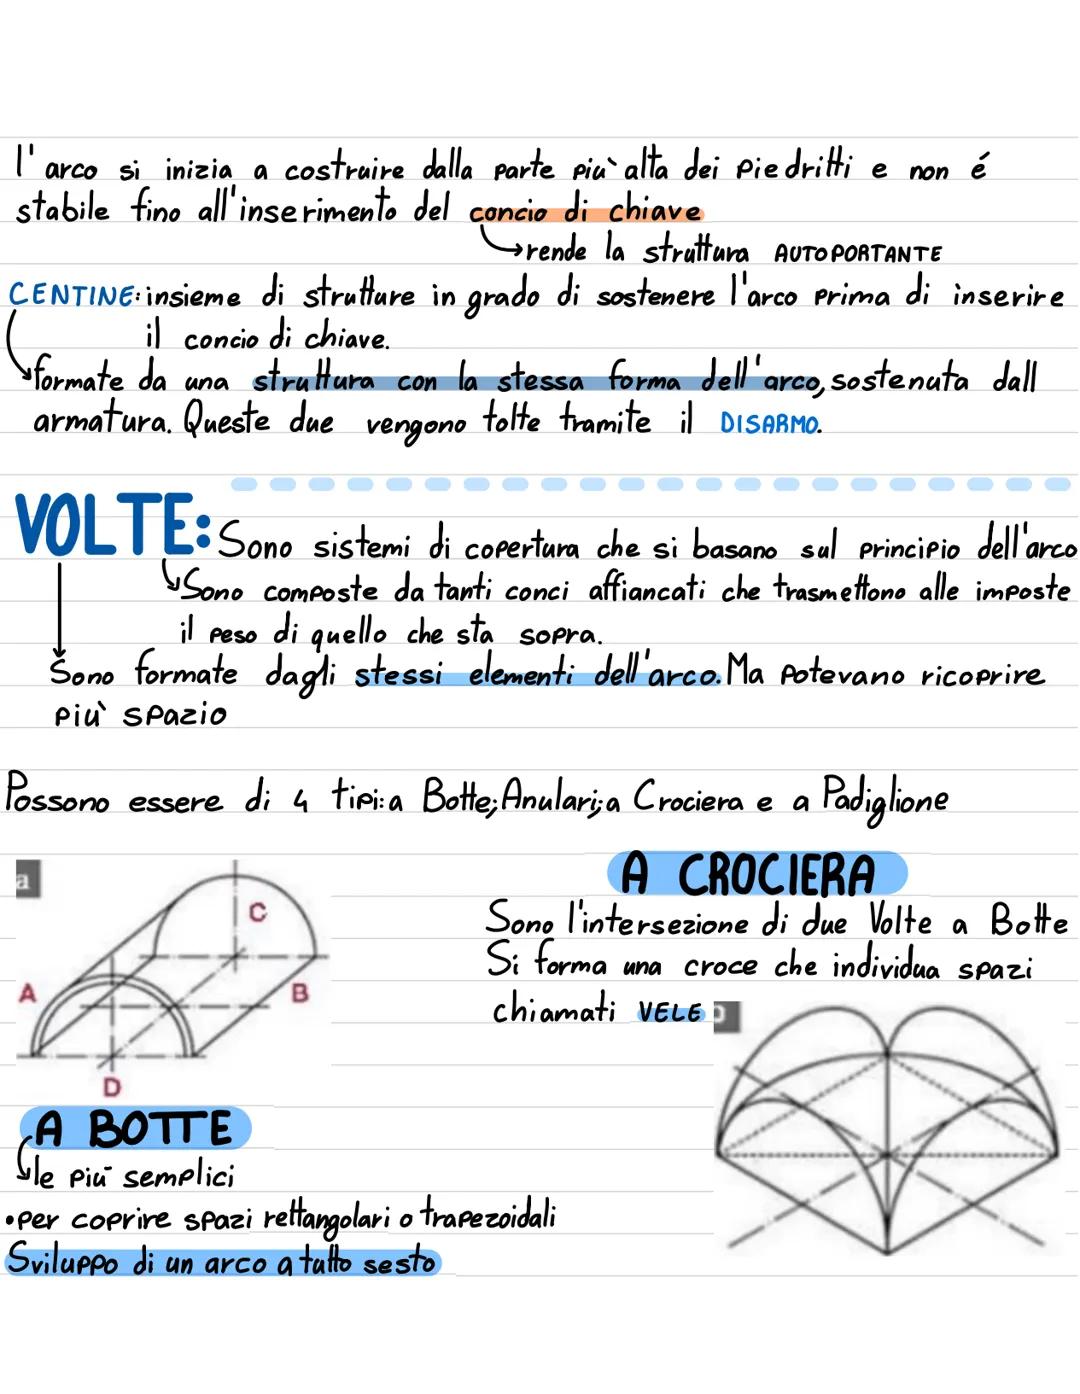 l'arco si inizia a costruire dalla parte più alta dei piedritti e non é
stabile fino all'inserimento del concio di chiave
rende la struttura AUTOPORTANTE
CENTINE: insieme di strutture in grado di sostenere l'arco prima di inserire
il concio di chiave.
formate da una struttura con la stessa forma dell'arco, sostenuta dall
armatura. Queste due vengono tolte tramite il DISARMO.
VOLTE: Sono sistemi di copertura che si basano sul principio dell'arco
Sono composte da tanti conci affiancati che trasmettono alle imposte
il peso di quello che sta sopra.
Sono formate dagli stessi elementi dell'arco. Ma potevano ricoprire
più spazio
Possono essere di 4 tipi: a Botte; Anulari; a Crociera e a Padiglione
a
C
A
B
D
A BOTTE
le più semplici
•per coprire spazi rettangolari o trapezoidali
Sviluppo di un arco a tutto sesto
A CROCIERA
Sono l'intersezione di due Volte a Botte
Si forma una croce che individua spazi
chiamati VELE